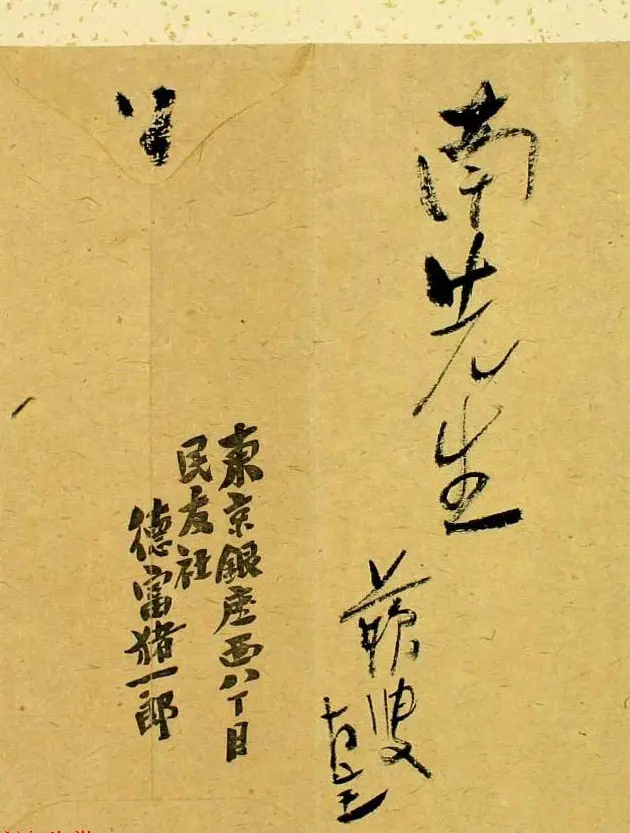 南先生
蘇叟
東京銀座西八丁目
民友社
德富猪一郎